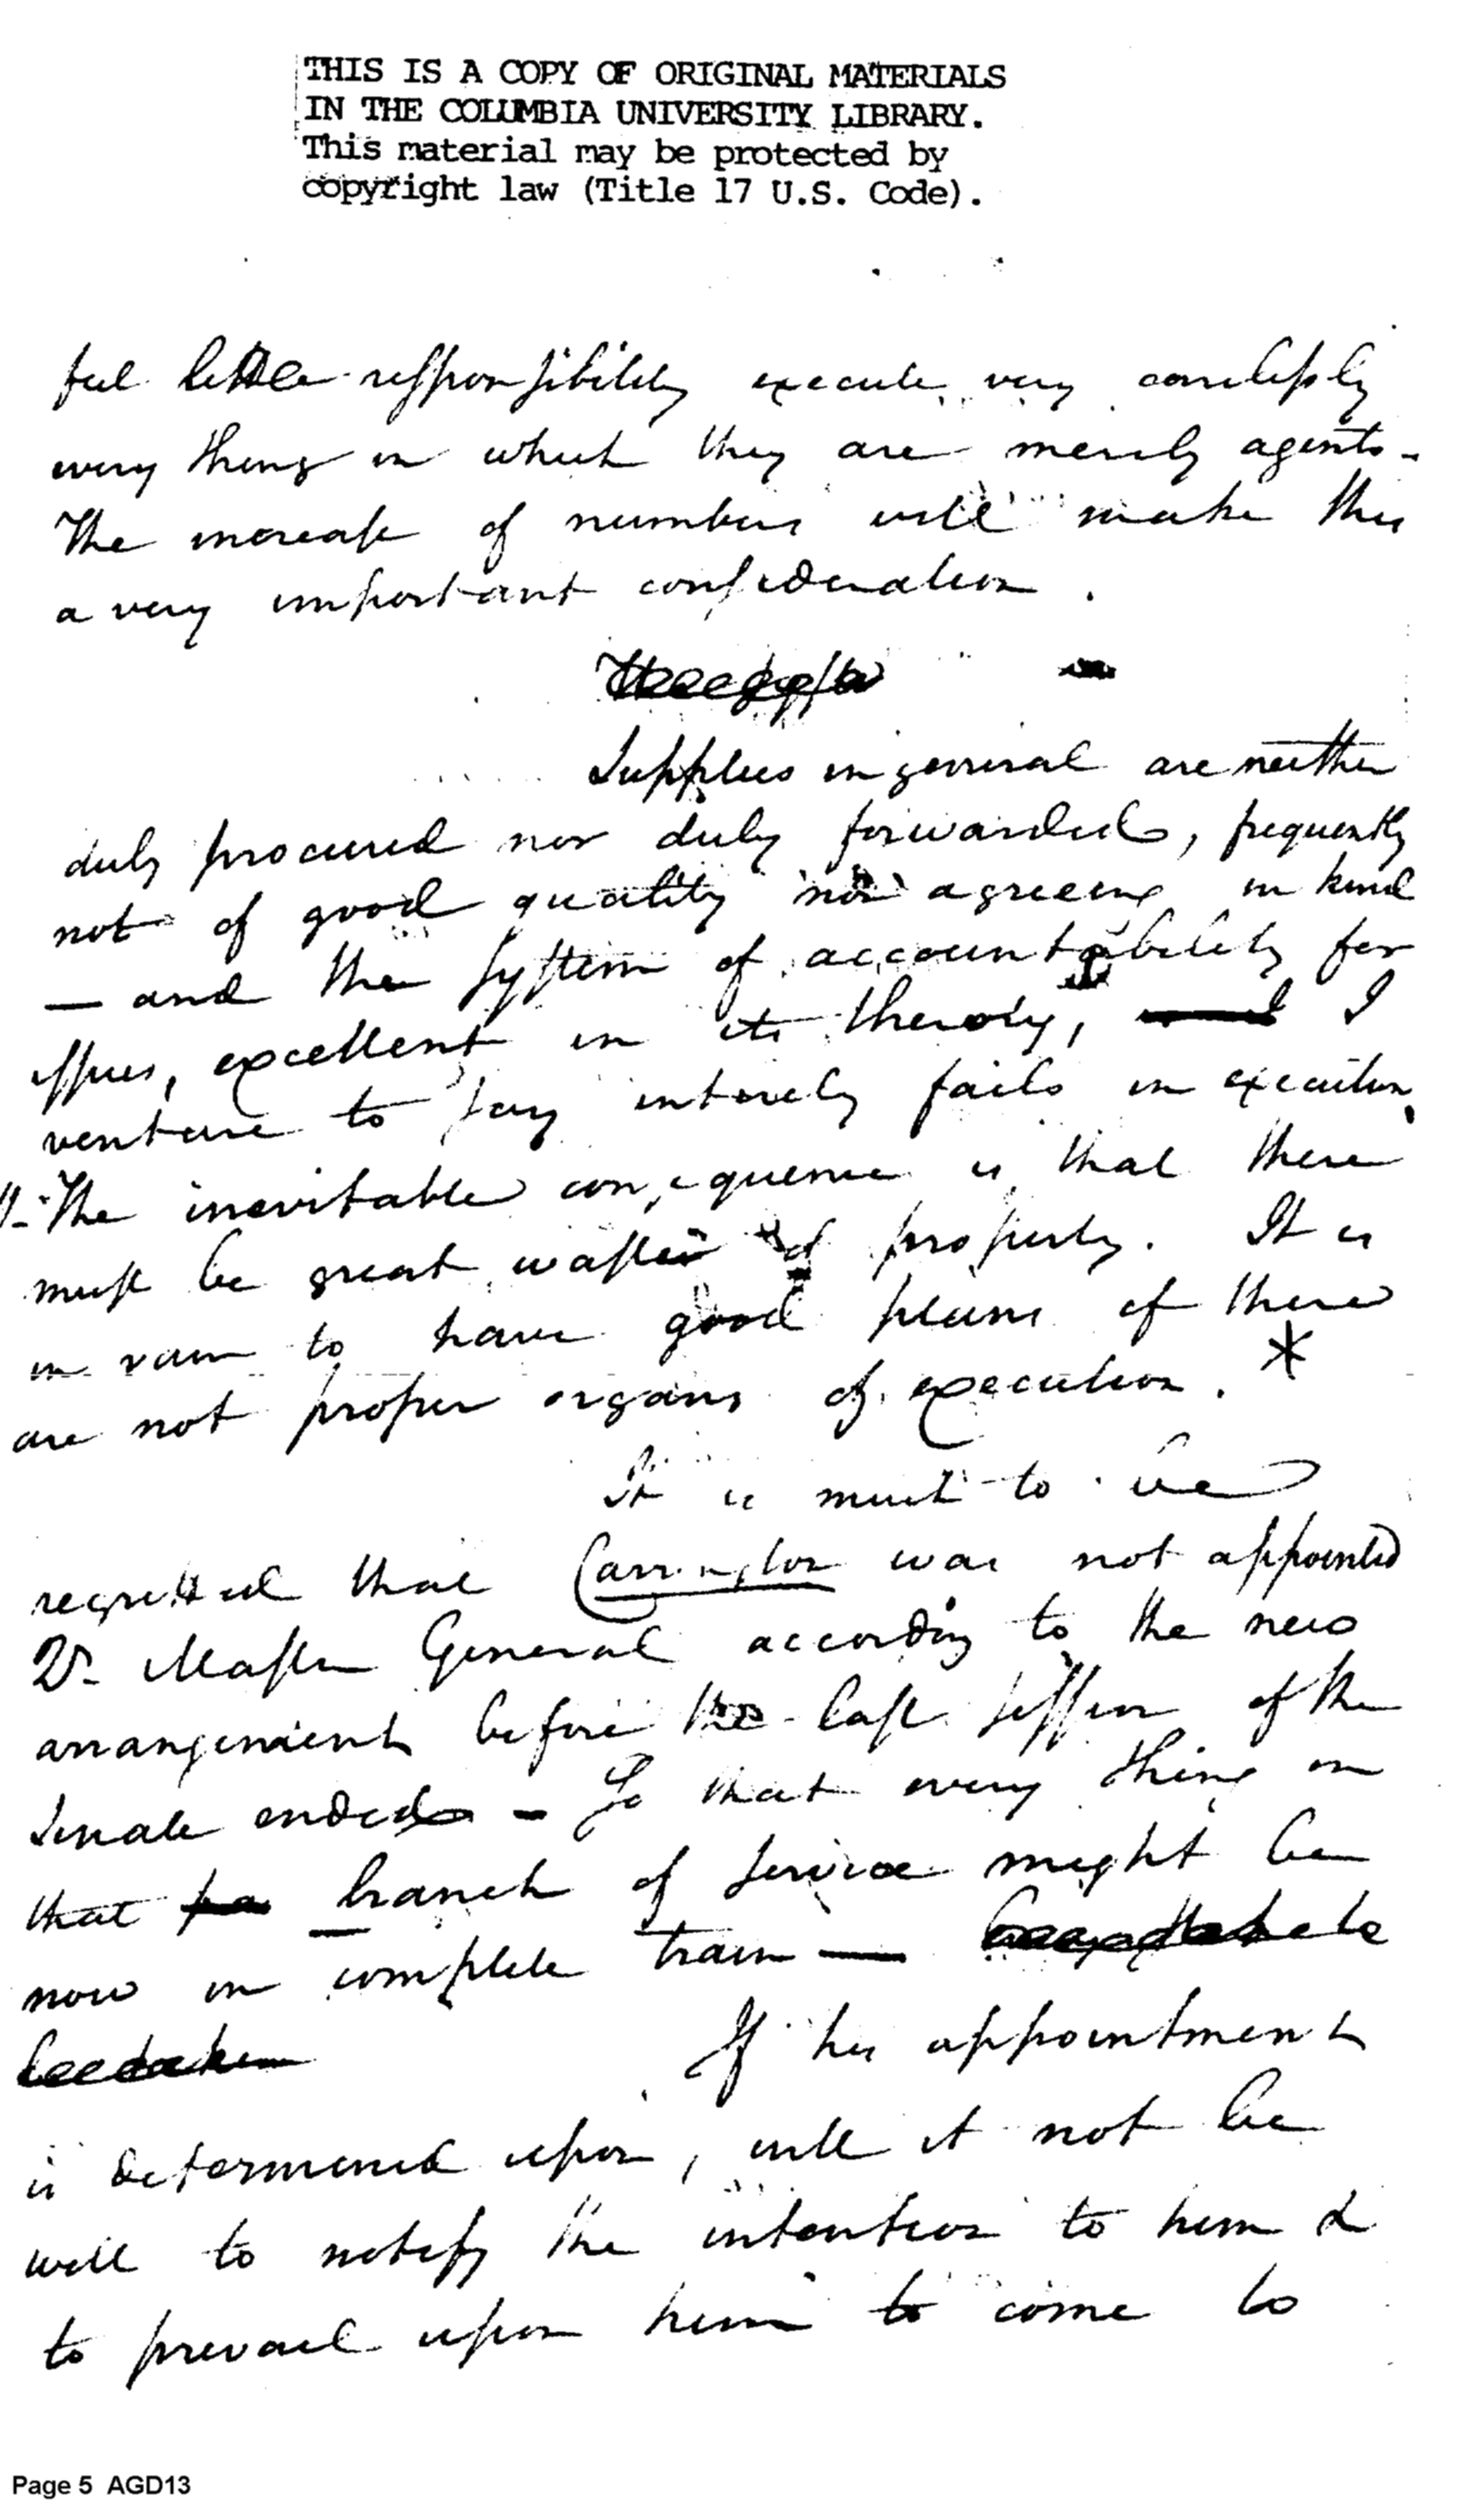 THIS IS A COPY OF ORIGINAL MATERIALS
IN THE COLUMBIA UNIVERSITY LIBRARY.
This material may be protected by
copyright law (Title 17 U.S. Code).
feel little responsibility execute very carelessly
every thing in which they are merely agents -
The increase of numbers will make this
a very important consideration .
Supplies in general are neither
duly procured nor duly forwarded, frequently
not of good quality nor agreeing in kind
— and the system of accountability for
issues, excellent in its theory, I
venture to say intirely fails in execution
The inevitable consequence is that there
must be great waste of property. It is
in vain to have good plans if there
are not proper organs of execution. *
It is much to be
regretted that Carrington was not appointed
Qr. Master General according to the new
arrangement before the last session of the
Senate ended - So that every thing in
that branch of service might be
now in complete train —
If his appointment
is determined upon, will it not be
well to notify the intention to him &
to prevail upon him to come to
Page 5 AGD13